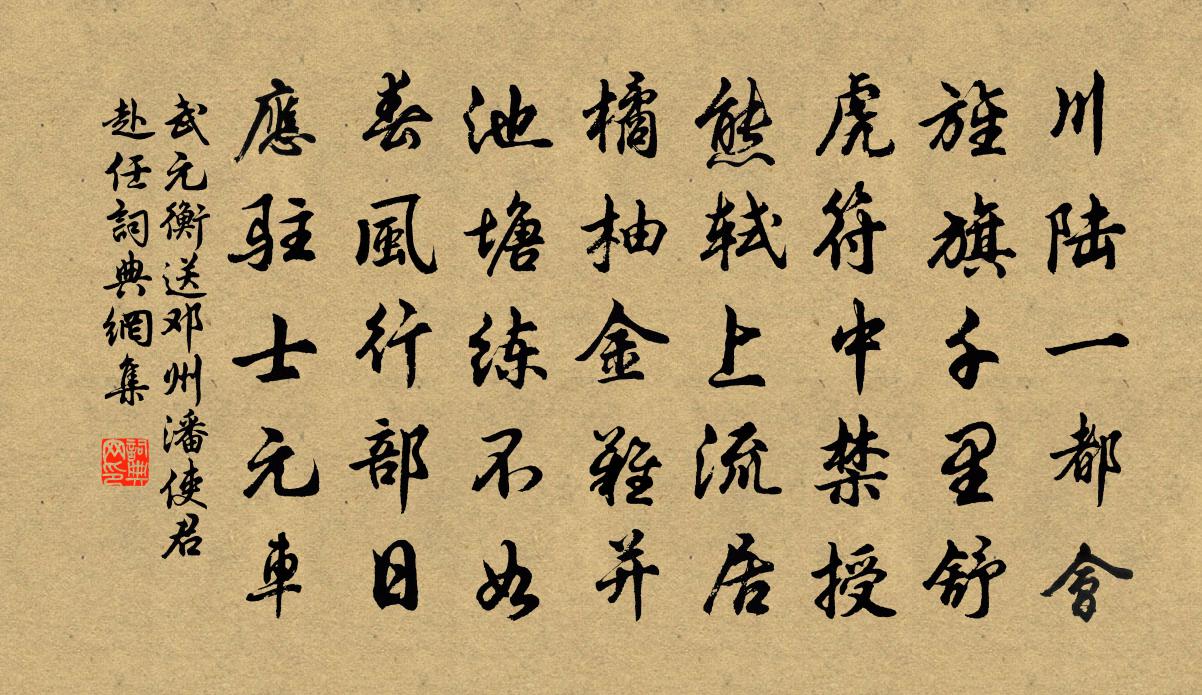 川陆一都會
旌旗千里舒
虎符中禁授
熊轼上流居
橘柚金難并
池塘练不如
春風行部日
應駐士元車
武元衡送邓州潘使君
赴任詞典網集
詞典
网印